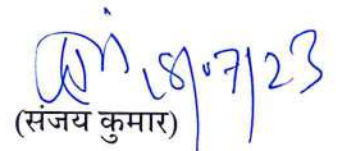 18/07/23
(संजय कुमार)